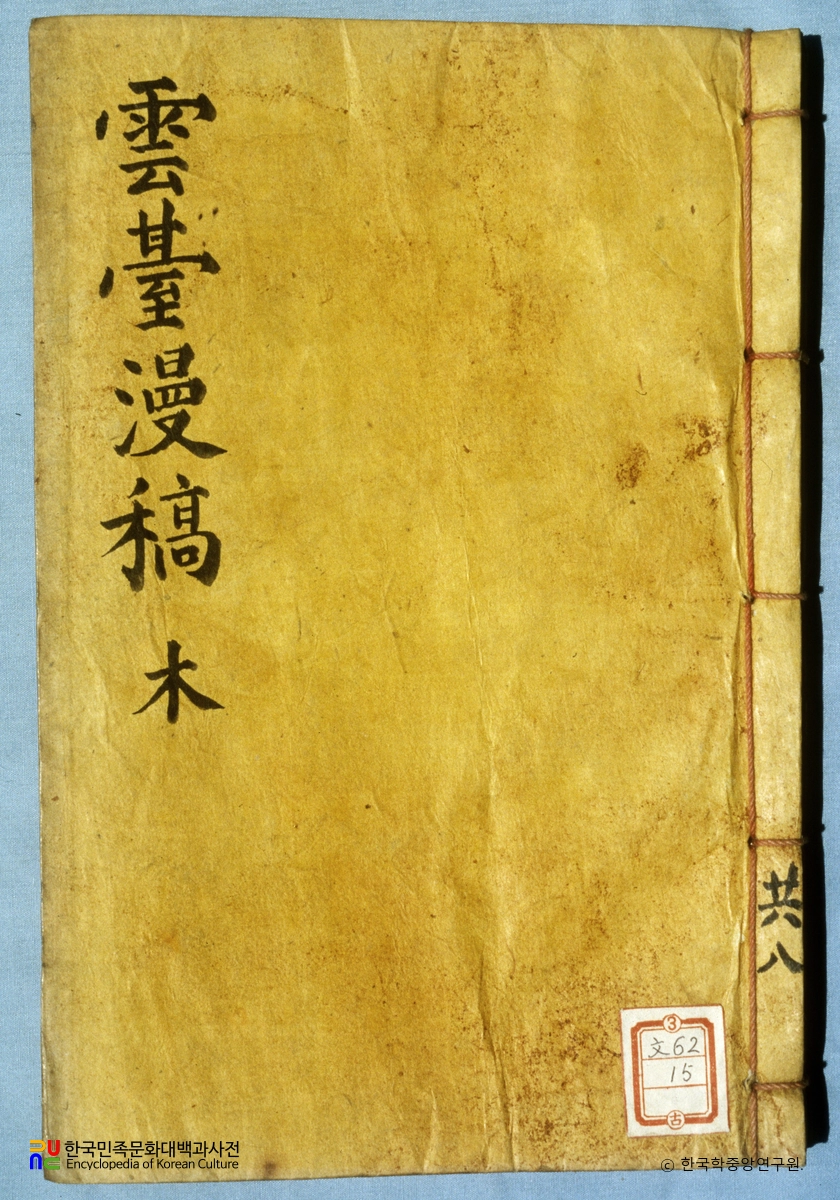 雲臺漫稿 木
共八
3
文62
15
古
한국민족문화대백과사전
Encyclopedia of Korean Culture
© 한국학중앙연구원.